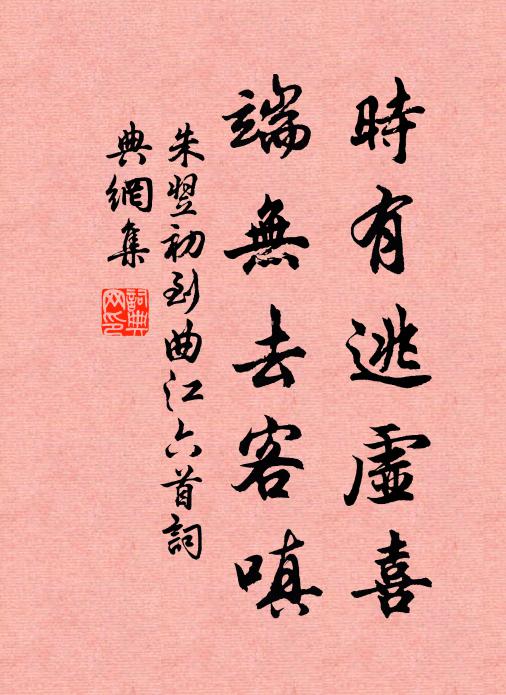 時有逃虛喜
端無去客嗔
朱翌初到曲江六首詞
典網集
詞典
网印